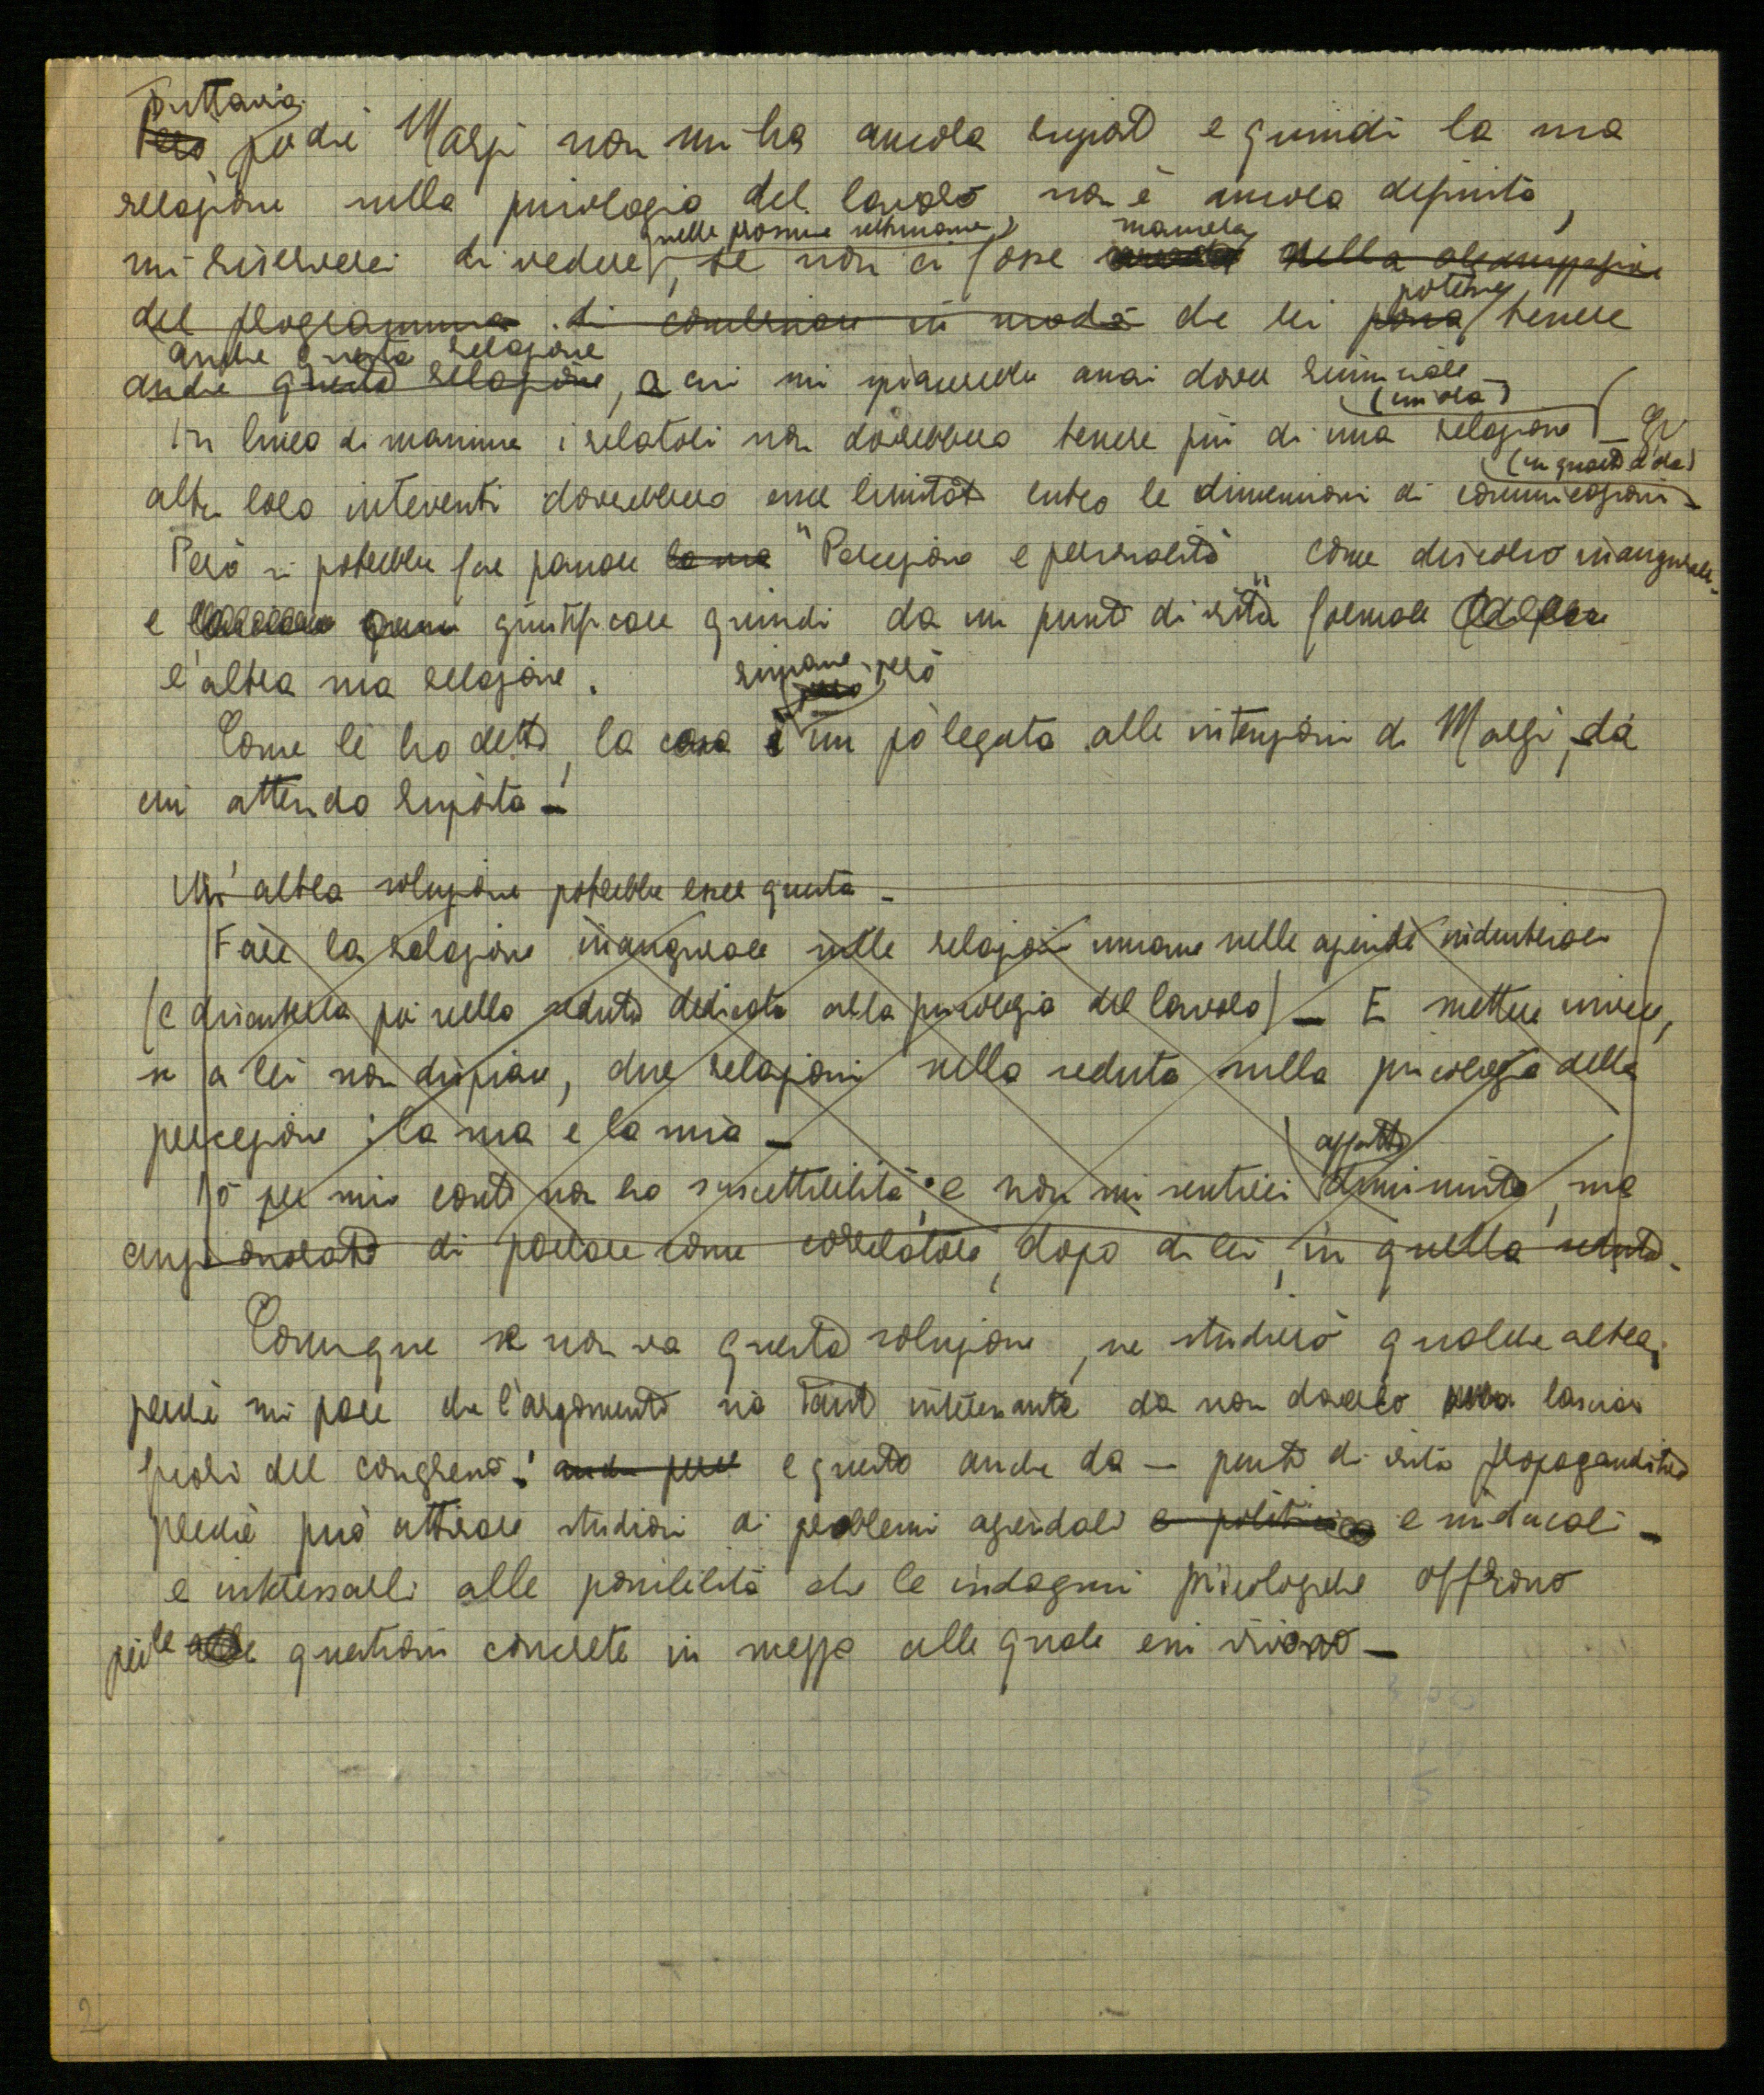 Tuttavia
Però perché Marzi non mi ha ancora risposto e quindi la sua
relazione sulla psicologia del lavoro non è ancora definita,
nelle prossime settimane maniera
mi riserverei di vedere, se non ci fosse nella
potesse
del programma di combinare in modo che lei possa tenere
anche questa relazione
anche questa relazione, a cui mi spiacerebbe assai dover rinunciare
(unica)
In linea di massima i relatori non dovrebbero tenere più di una relazione – Gli
(in quarto d'ora)
altri loro interventi dovrebbero esser limitati entro le dimensioni di comunicazioni –
Però si potrebbe far passare la sua "Percezione e personalità" come discorso inaugurale –
e giustificare quindi da un punto di vista formale
l'altra sua relazione.
rimane però
però
Come le ho detto, la cosa è un pò legata alle intenzioni di Marzi, da
cui attendo risposta –
Un'altra soluzione potrebbe esser questa –
Fare la relazione inaugurale sulle relazioni umane nelle aziende industriali
(e discuterla poi nella seduta dedicata alla psicologia del lavoro) – E mettere invece,
se a lei non dispiace, due relazioni nella seduta sulla psicologia della
percezione: la sua e la mia –
affatto
Io per mio conto non ho suscettibilità, e non mi sentirei diminuito, ma
anzi onorato di parlare come correlatore, dopo di lei, in quella seduta –
Comunque se non va questa soluzione, ne studierò qualche altra;
perché mi pare che l'argomento sia tanto interessante da non doverlo lasciar
fuori del congresso: anche per e questo anche da – punto di vista propagandistico
perché può attirare studiosi di problemi aziendali e politici e sindacali –
e interessarli alle possibilità che le indagini psicologiche offrono
per le alle questioni concrete in mezzo alle quale essi vivono –
2